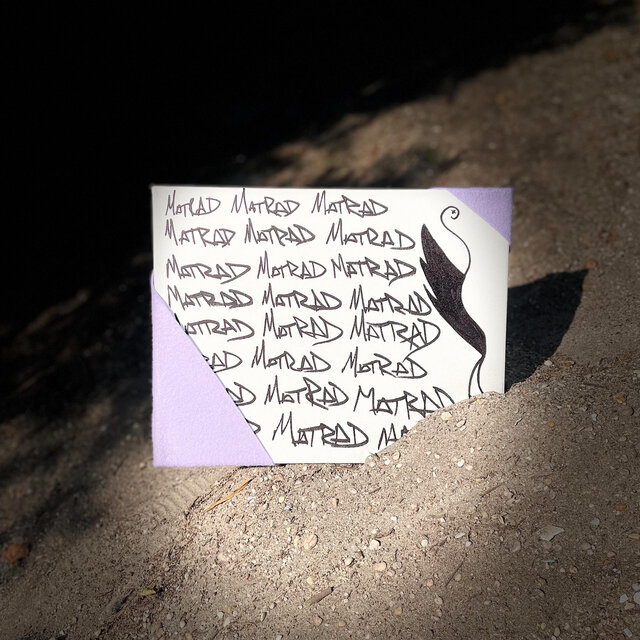 MATRAD MATRAD MATRAD
MATRAD MATRAD MATRAD
MATRAD MATRAD MATRAD
MATRAD MATRAD MATRAD
MATRAD MATRAD MATRAD
RAD MATRAD MATRAD
D MATRAD MATRAD
MATRAD MA